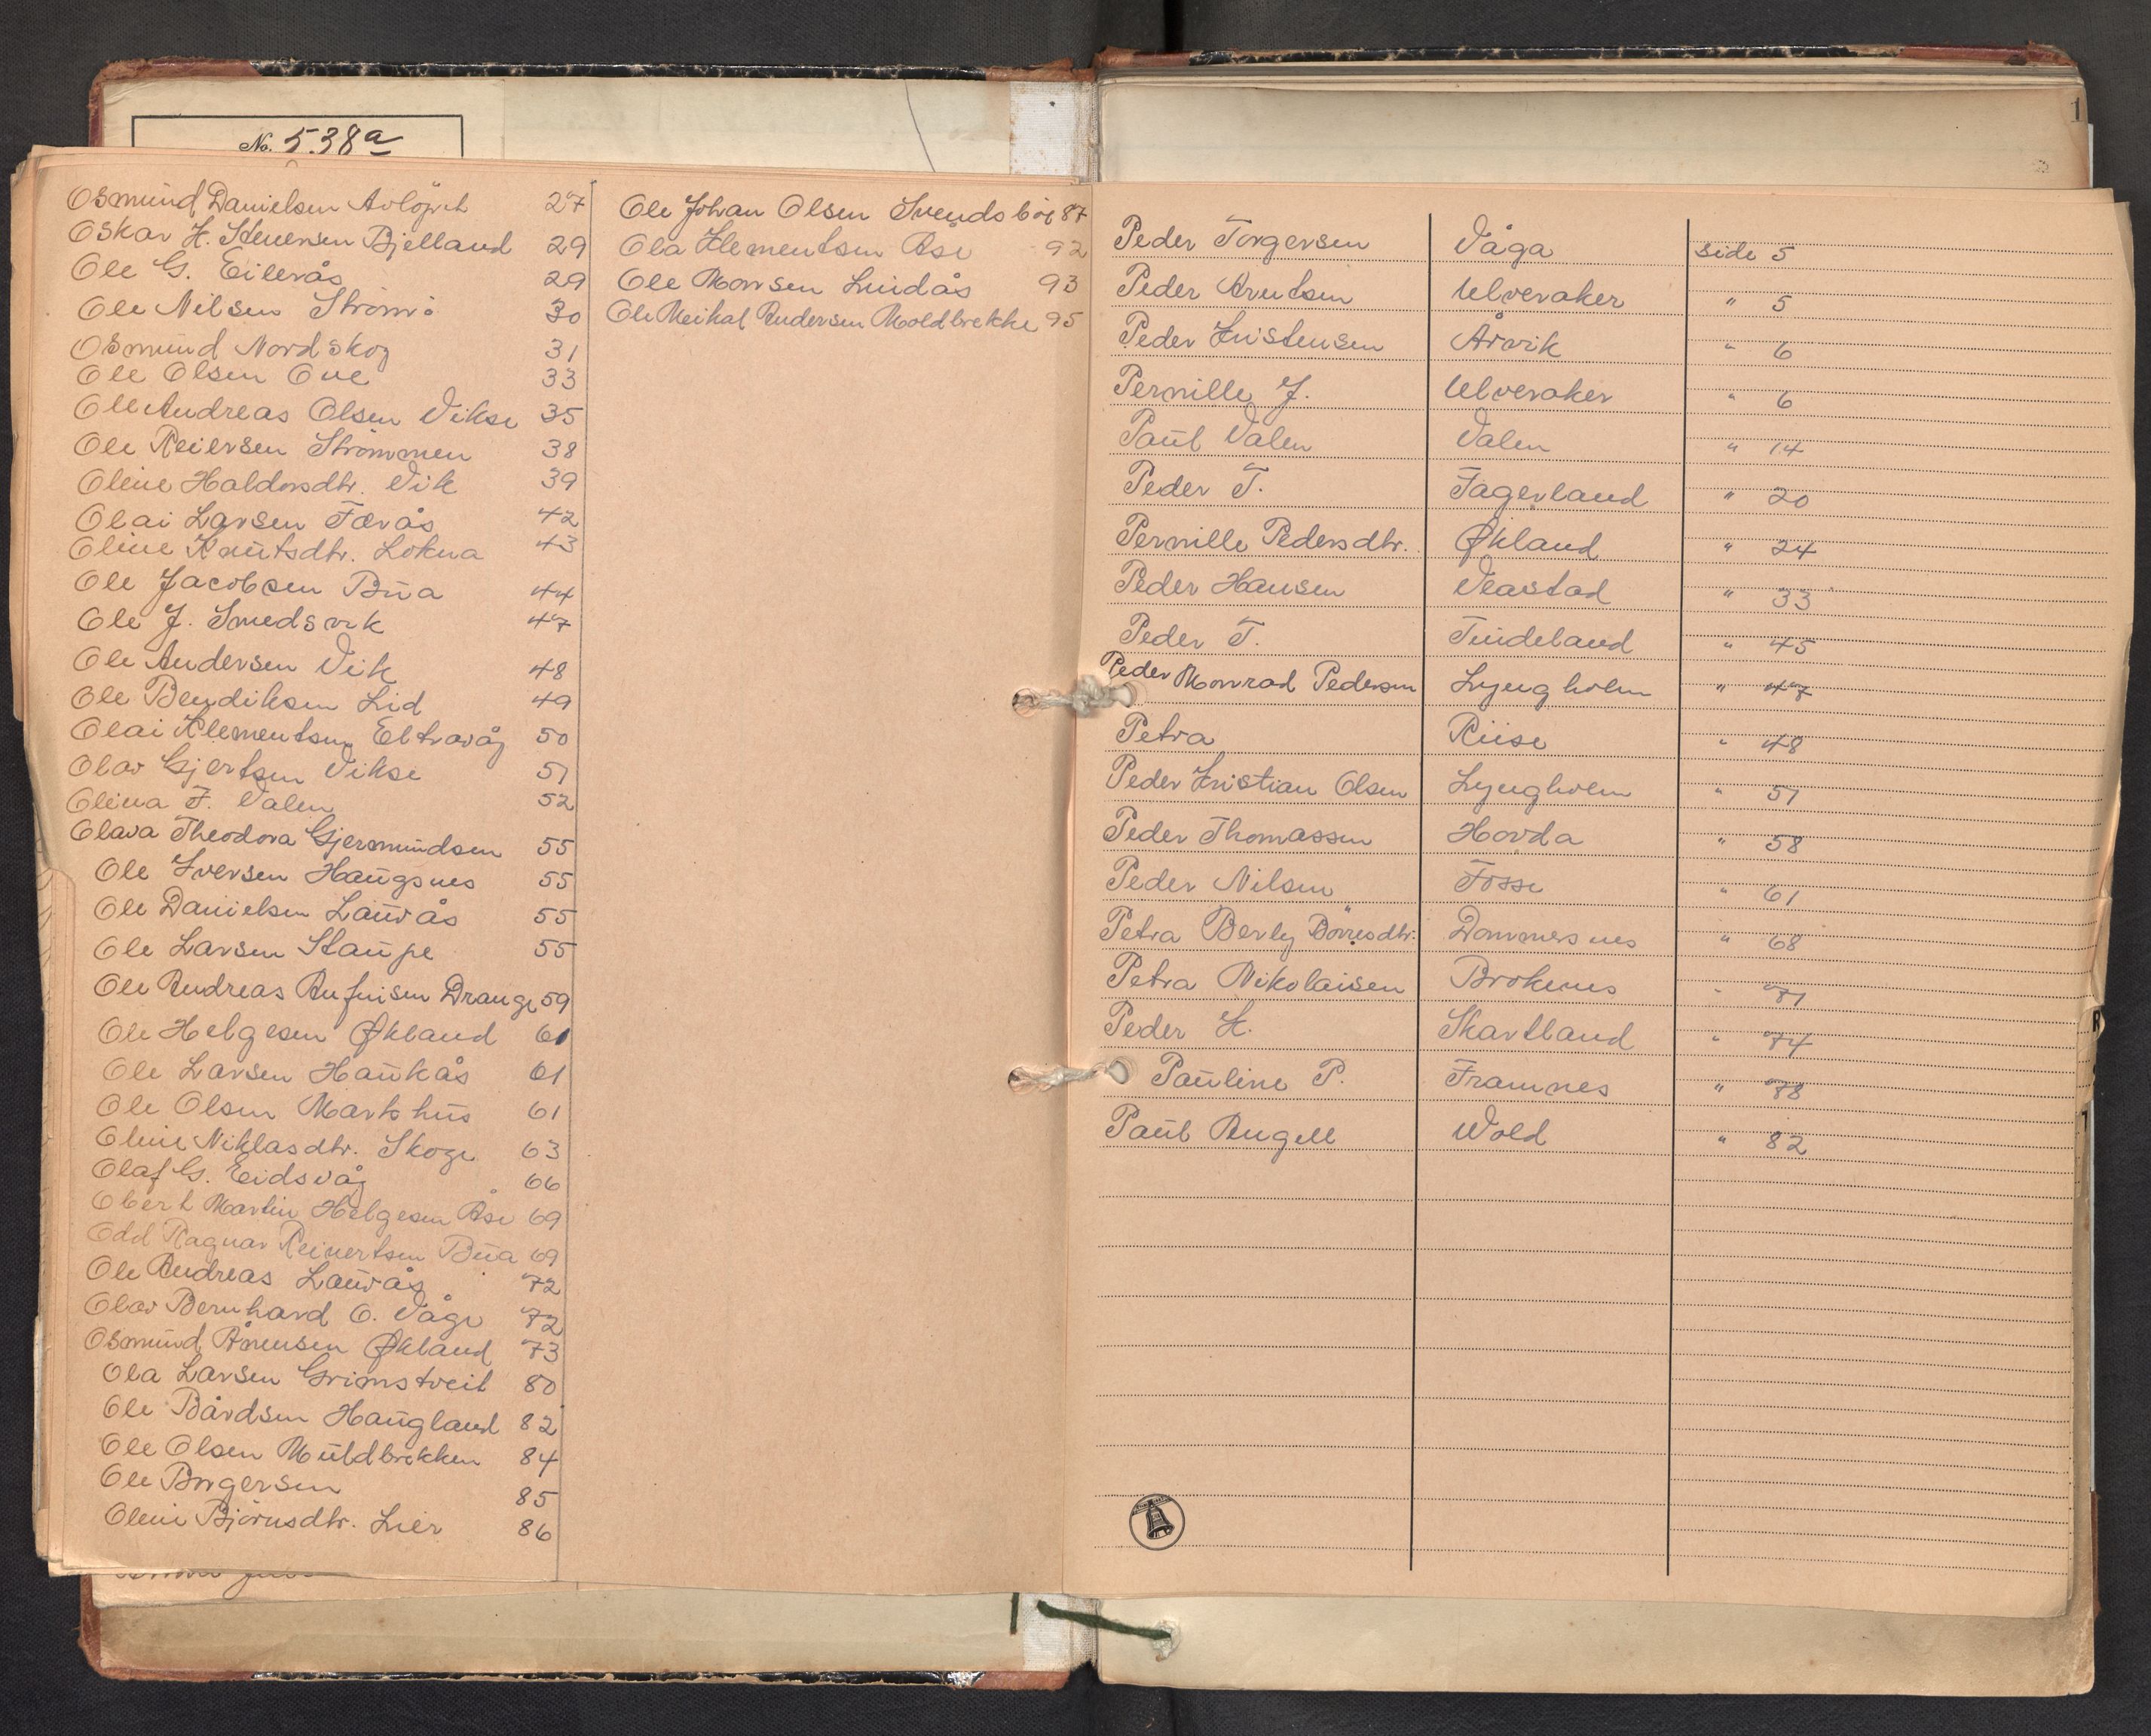 No. 538a
Osmund Danielsen Avløp 27
Oskar K. Stenersen Bjelland 29
Ole G. Eilerås 29
Ole Nilsen Strømø 30
Osmund Nordskog 31
Ole Olsen Ove 33
Ole Andreas Olsen Vikse 35
Ole Reiersen Strømmen 38
Oline Haldorsdtr. Vik 39
Olai Larsen Færås 42
Oline Knutsdtr. Lokna 43
Ole Jacobsen Bua 44
Ole J. Smedsvik 47
Ole Andersen Vik 48
Ole Bendiksen Lid 49
Olai Klementsen Eltravåg 50
Olav Gjertsen Vikse 51
Olina F. Valen 52
Olava Theodora Gjermundsen 55
Ole Iversen Haugsnes 55
Ole Danielsen Lauvås 55
Ole Larsen Staupe 55
Ole Andreas Anfinsen Drange 59
Ole Helgesen Økland 61
Ole Larsen Haukås 61
Ole Olsen Markhus 61
Oline Niklasdtr. Skoge 63
Olaf G. Eidsvåg 66
Obert Martin Helgesen Åse 69
Odd Ragnar Reinertsen Bua 69
Ole Andreas Lauvås 72
Olav Bernhard O. Våge 72
Osmund Ånensen Økland 73
Ola Larsen Grimstveit 80
Ole Bårdsen Haugland 82
Ole Olsen Muldbrekken 84
Ole Borgersen 85
Oline Bjørnsdtr. Lier 86
Ole Johan Olsen Svendsbøe 87
Ola Klementsen Åse 92
Ole Monsen Lindås 93
Ole Meikal Andersen Moldbrekke 95
Peder Torgersen Våga side 5
Peder Arntsen Ulveraker " 5
Peder Kristensen Årvik " 6
Pernille J. Ulveraker " 6
Paul Valen Valen " 14
Peder T. Fagerland " 20
Pernille Pedersdtr. Økland " 24
Peder Hansen Veastad " 33
Peder T. Tindeland " 45
Peder Monrad Pedersen Lyngholm " 47
Petra Riise " 48
Peder Kristian Olsen Lyngholm " 51
Peder Thomassen Hovda " 58
Peder Nilsen Fosse " 61
Petra Berly Børresdtr. Dommersnes " 68
Petra Nikolaisen Brokenes " 71
Peder K. Skartland " 74
Pauline P. Framnes " 78
Paul Angell Wold " 82